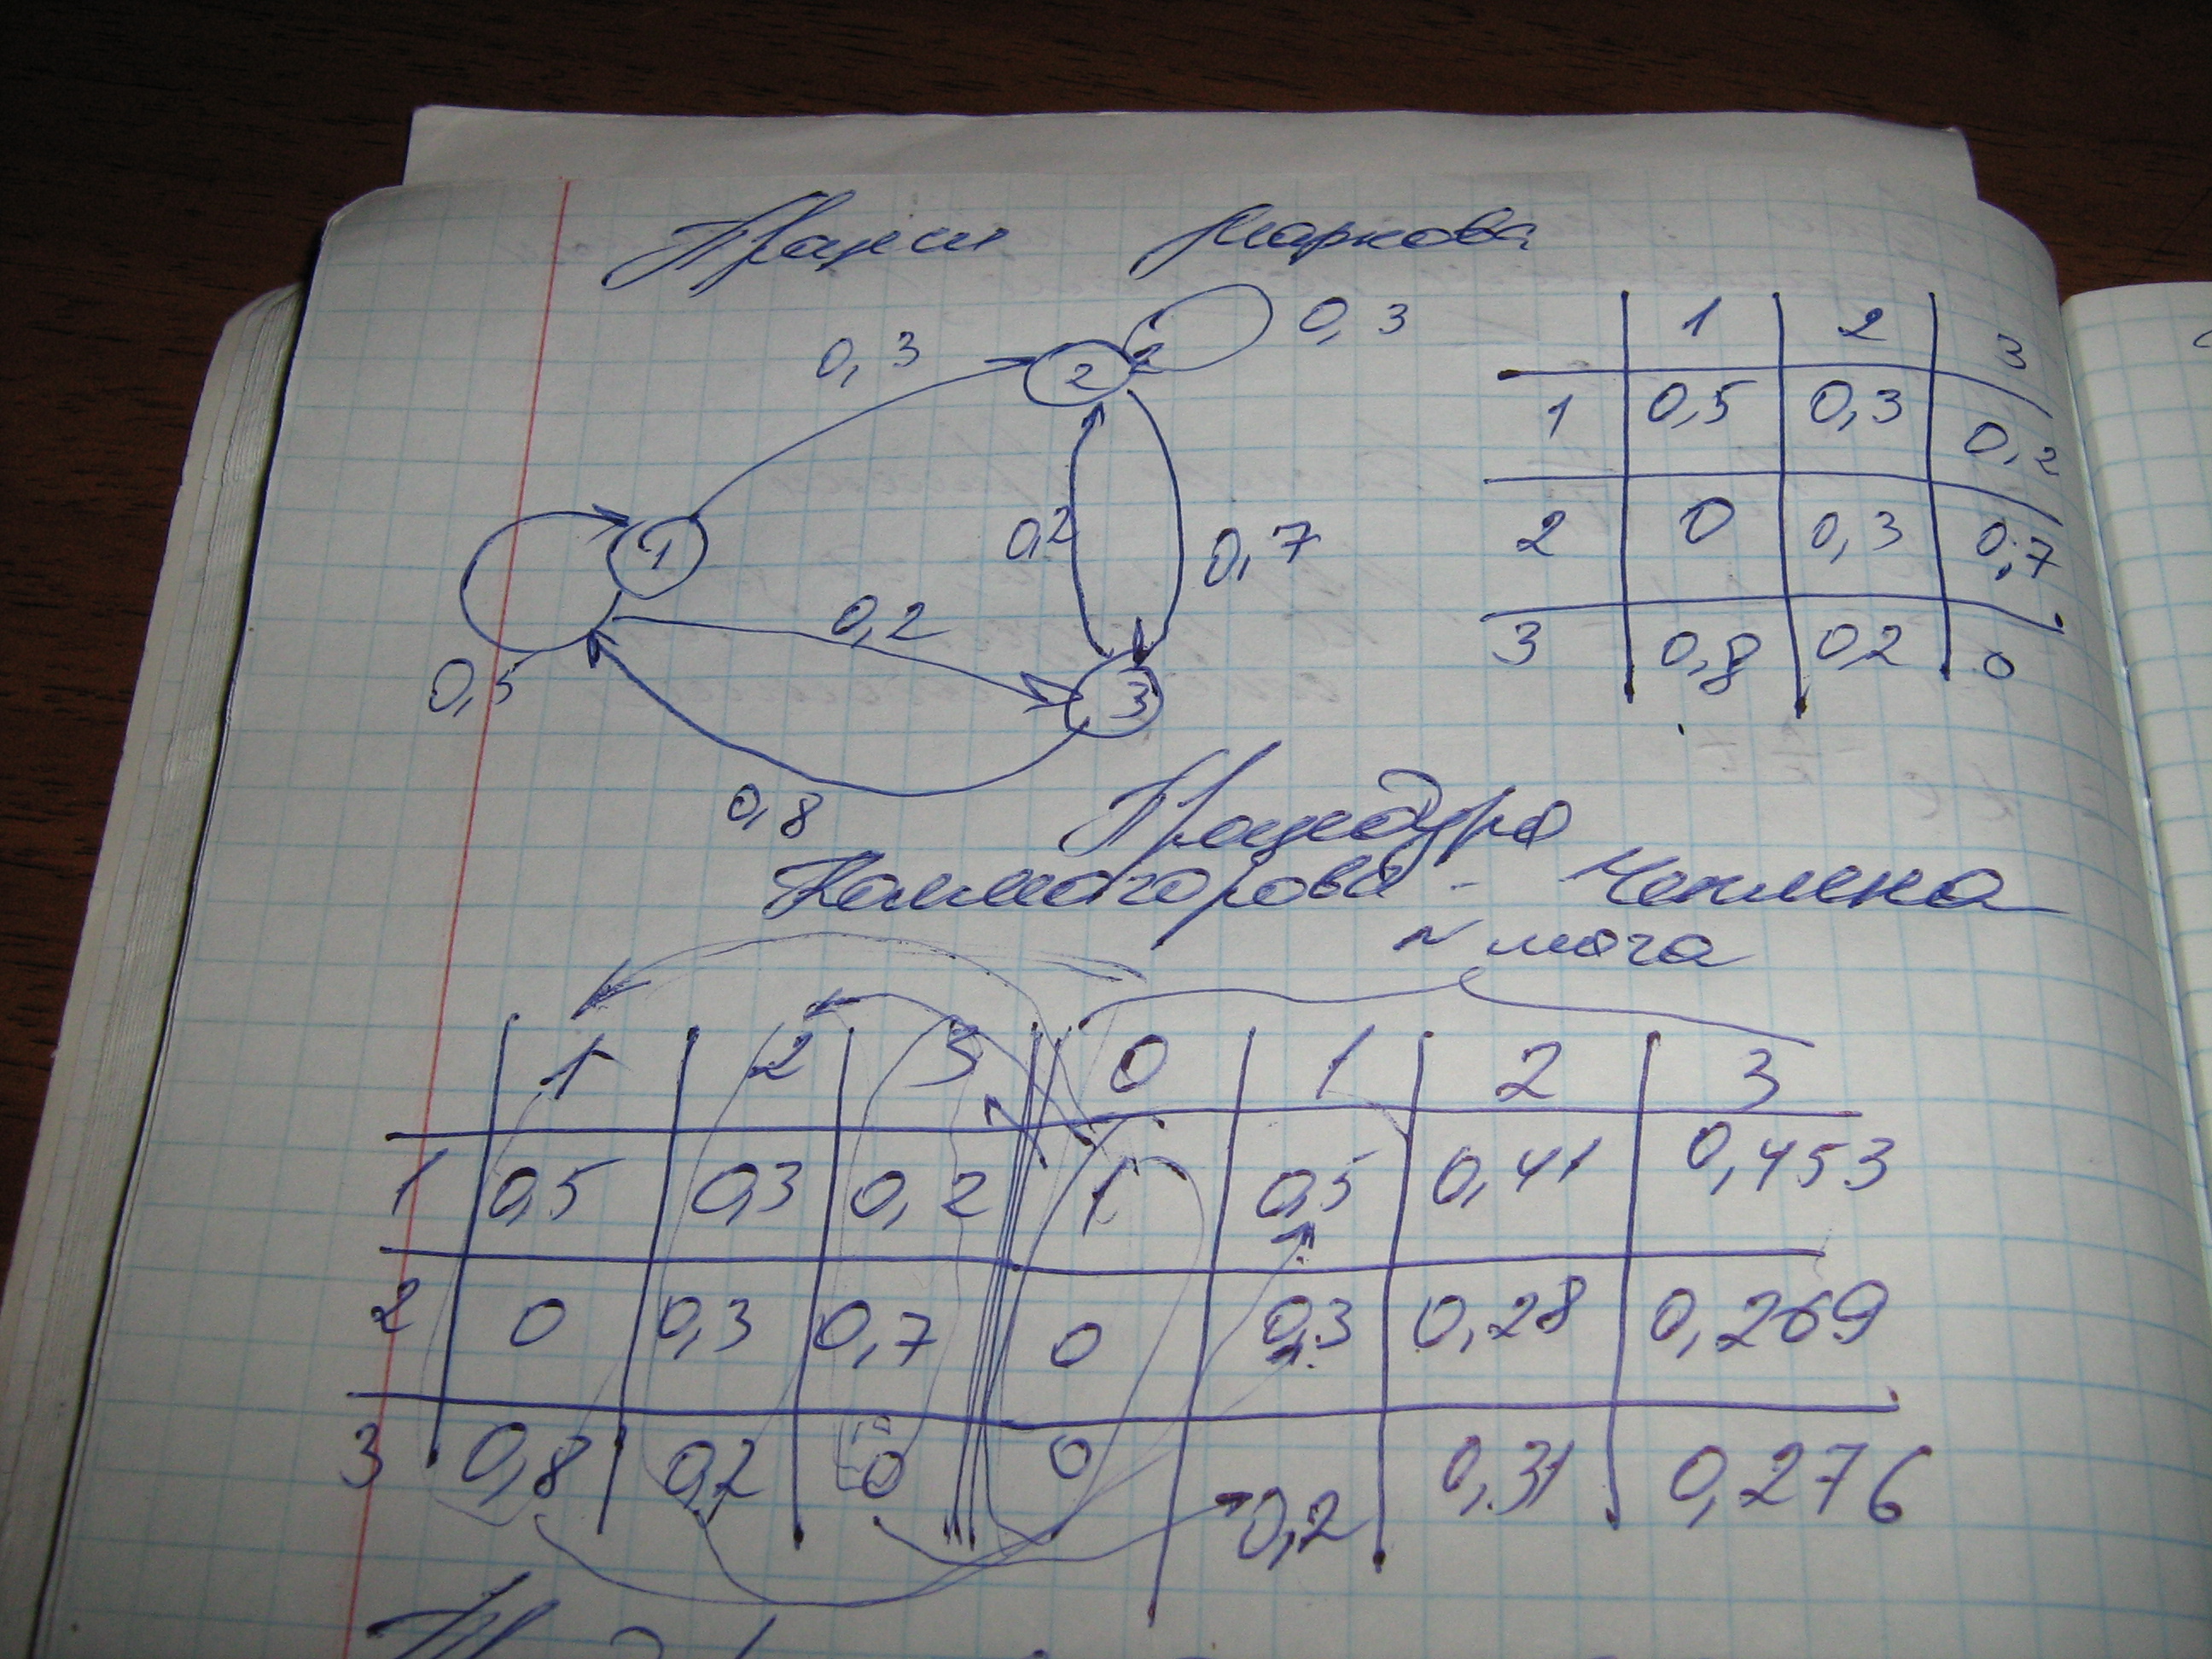 Процесс Маркова
0,3
2
0,3
1
0,5
0,2
0,2
0,7
3
0,8
1 2 3
1 0,5 0,3 0,2
2 0 0,3 0,7
3 0,8 0,2 0
Процедура
Колмогорова - Чепмена
N шага
1 2 3 0 1 2 3
1 0,5 0,3 0,2 1 0,5 0,41 0,453
2 0 0,3 0,7 0 0,3 0,28 0,269
3 0,8 0,2 0 0 0,2 0,31 0,276